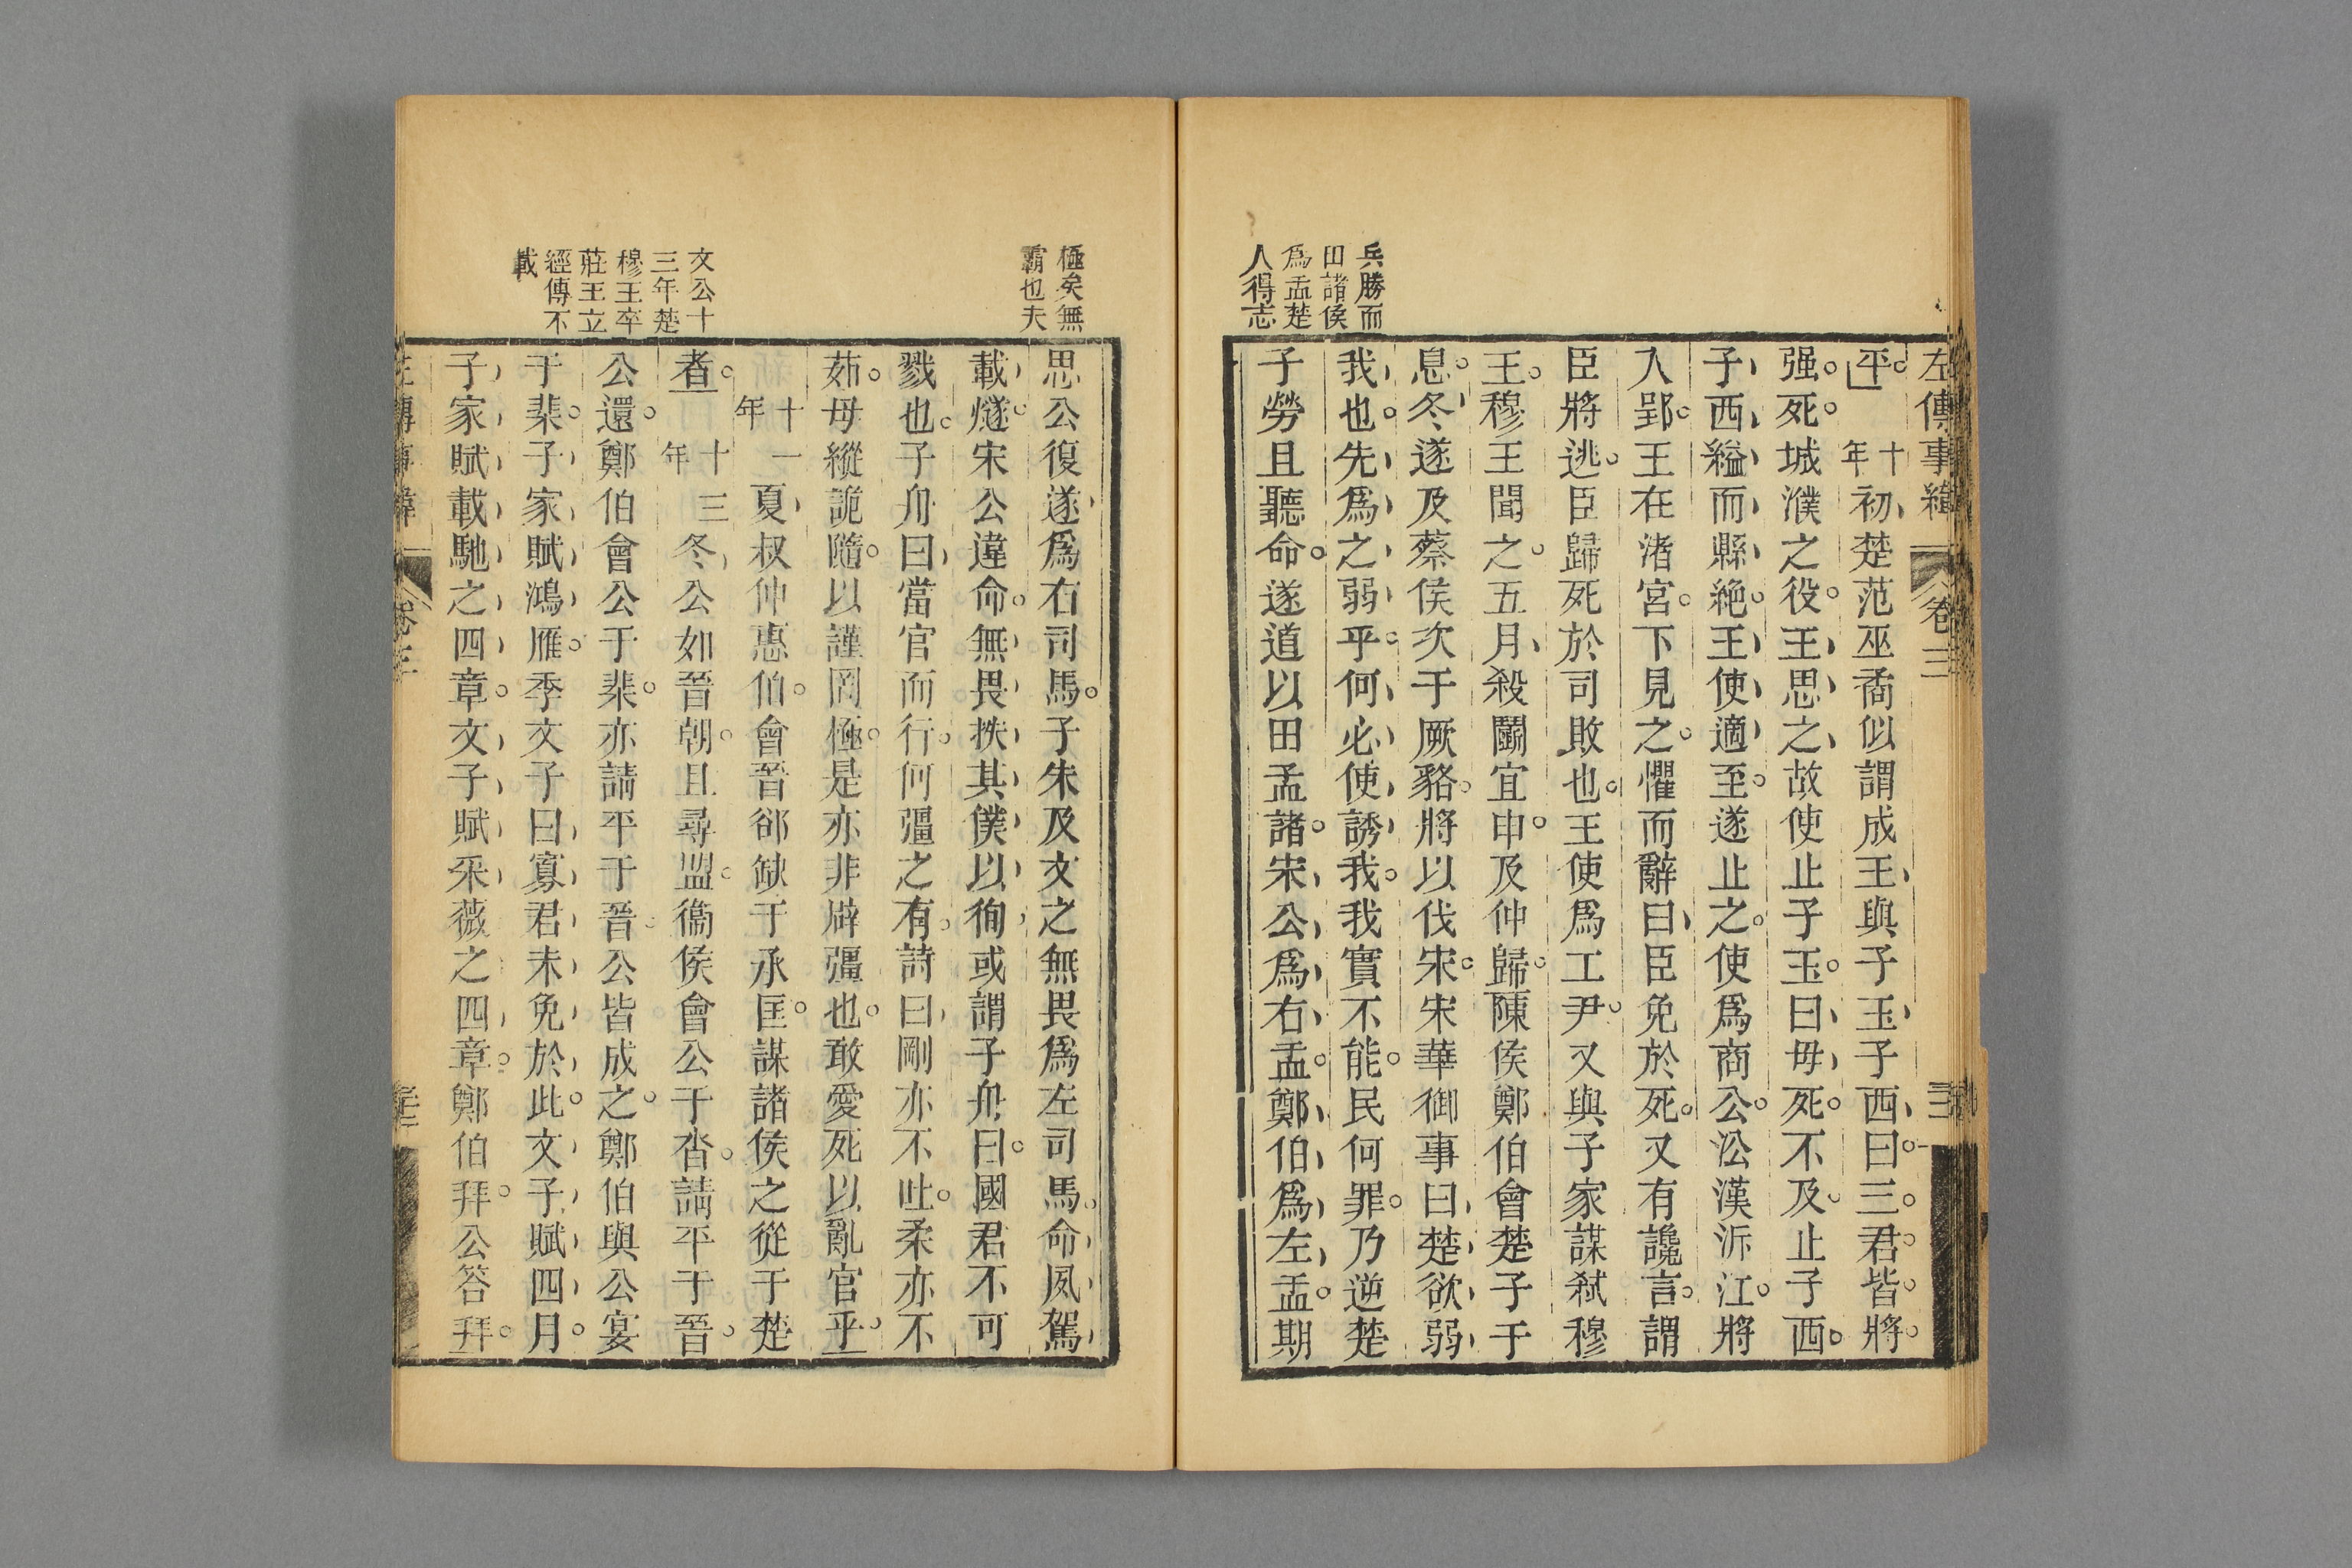 左傳事緯
卷三
三
兵勝而
田諸侯
爲盂楚
人得志
平十年初楚范巫矞似謂成王與子玉子西曰三君皆將
强死城濮之役王思之故使止子玉曰毋死不及止子西
子西縊而縣絶王使適至遂止之使爲商公沿漢泝江將
入郢王在渚宮下見之懼而辭曰臣免於死又有讒言謂
臣將逃臣歸死於司敗也王使爲工尹又與子家謀弒穆
王穆王聞之五月殺鬭宜申及仲歸陳侯鄭伯會楚子于
息冬遂及蔡侯次于厥貉將以伐宋宋華御事曰楚欲弱
我也先爲之弱乎何必使誘我我實不能民何罪乃逆楚
子勞且聽命遂道以田孟諸宋公爲右盂鄭伯爲左盂期
極矣無
霸也夫
思公復遂爲右司馬子朱及文之無畏爲左司馬命夙駕
載燧宋公違命無畏抶其僕以徇或謂子舟曰國君不可
戮也子舟曰當官而行何彊之有詩曰剛亦不吐柔亦不
茹毋縱詭隨以謹罔極是亦非辟彊也敢愛死以亂官乎
十一年夏叔仲惠伯會晉郤缺于承匡謀諸侯之從于楚
文公十
三年楚
穆王卒
莊王立
經傳不
載
者十三年冬公如晉朝且尋盟衞侯會公于沓請平于晉
公還鄭伯會公于棐亦請平于晉公皆成之鄭伯與公宴
于棐子家賦鴻雁季文子曰寡君未免於此文子賦四月
子家賦載馳之四章文子賦采薇之四章鄭伯拜公答拜
左傳事緯
卷三